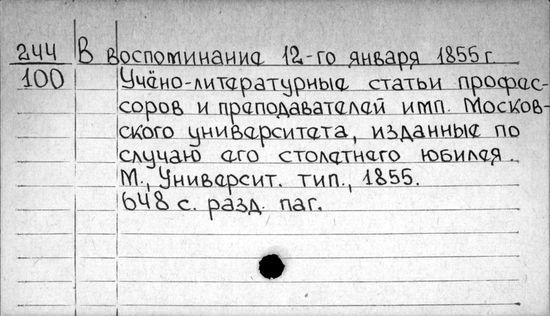 244 В воспоминание 12-го января 1855 г.
100 Учёно-литературные статьи профес-
соров и преподавателей имп. Москов-
ского университета, изданные по
случаю его столетнего юбилея.
М., Университ. тип., 1855.
648 с. разд. паг.